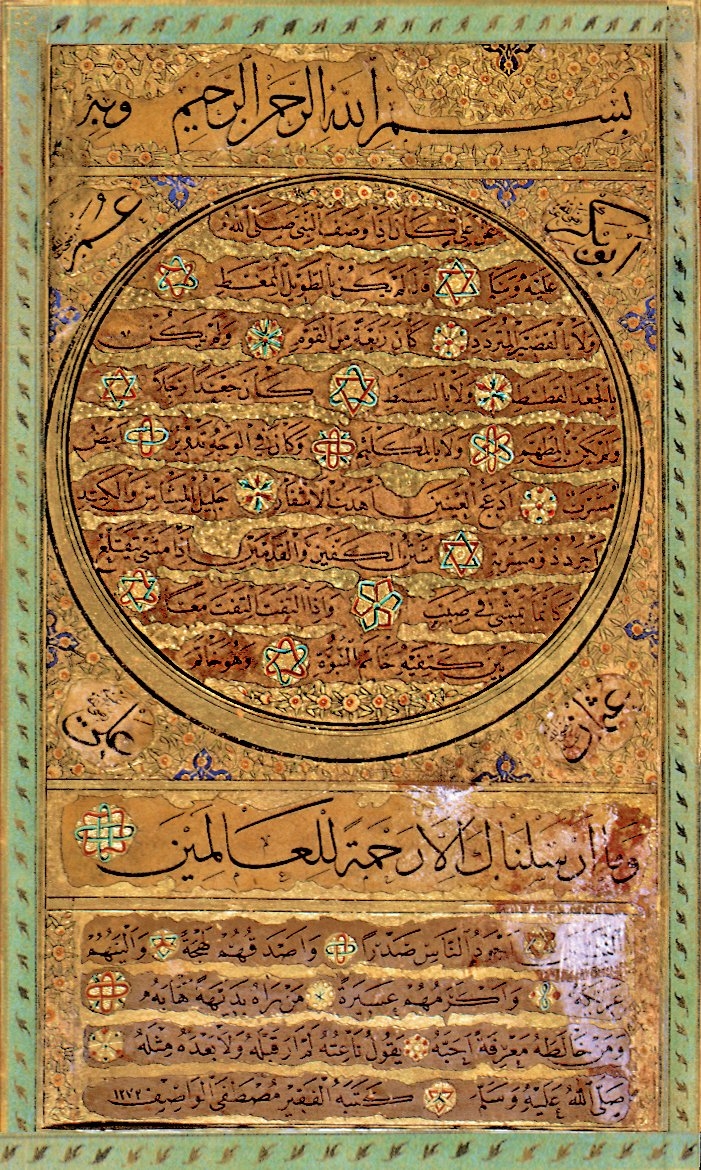 بسم الله الرحمن الرحيم وبه
ابوبكر
عمر
عن علي كان اذا وصف النبي صلى الله
عليه وسلم قال لم يكن بالطويل الممغط
ولا بالقصير المتردد كان ربعة من القوم ولم يكن
بالجعد القطط ولا بالسبط كان جعدا رجلا
ولم يكن بالمطهم ولا بالمكلثم وكان في الوجه تدوير ابيض
مشرب ادعج العينين اهدب الاشفار جليل المشاش والكتد
اجرد ذو مسربة شثن الكفين والقدمين اذا مشى يتقلع
كانما يمشي في صبب واذا التفت التفت معا
بين كتفيه خاتم النبوة وهو خاتم
عثمان
علي
وما ارسلناك الا رحمة للعالمين
النبيين اجود الناس صدرا واصدقهم لهجة والينهم
عريكة واكرمهم عشيرة من راه بديهة هابه
ومن خالطه معرفة احبه يقول ناعته لم ار قبله ولا بعده مثله
صلى الله عليه وسلم كتبه الفقير مصطفى الواصف ١٢٧٢